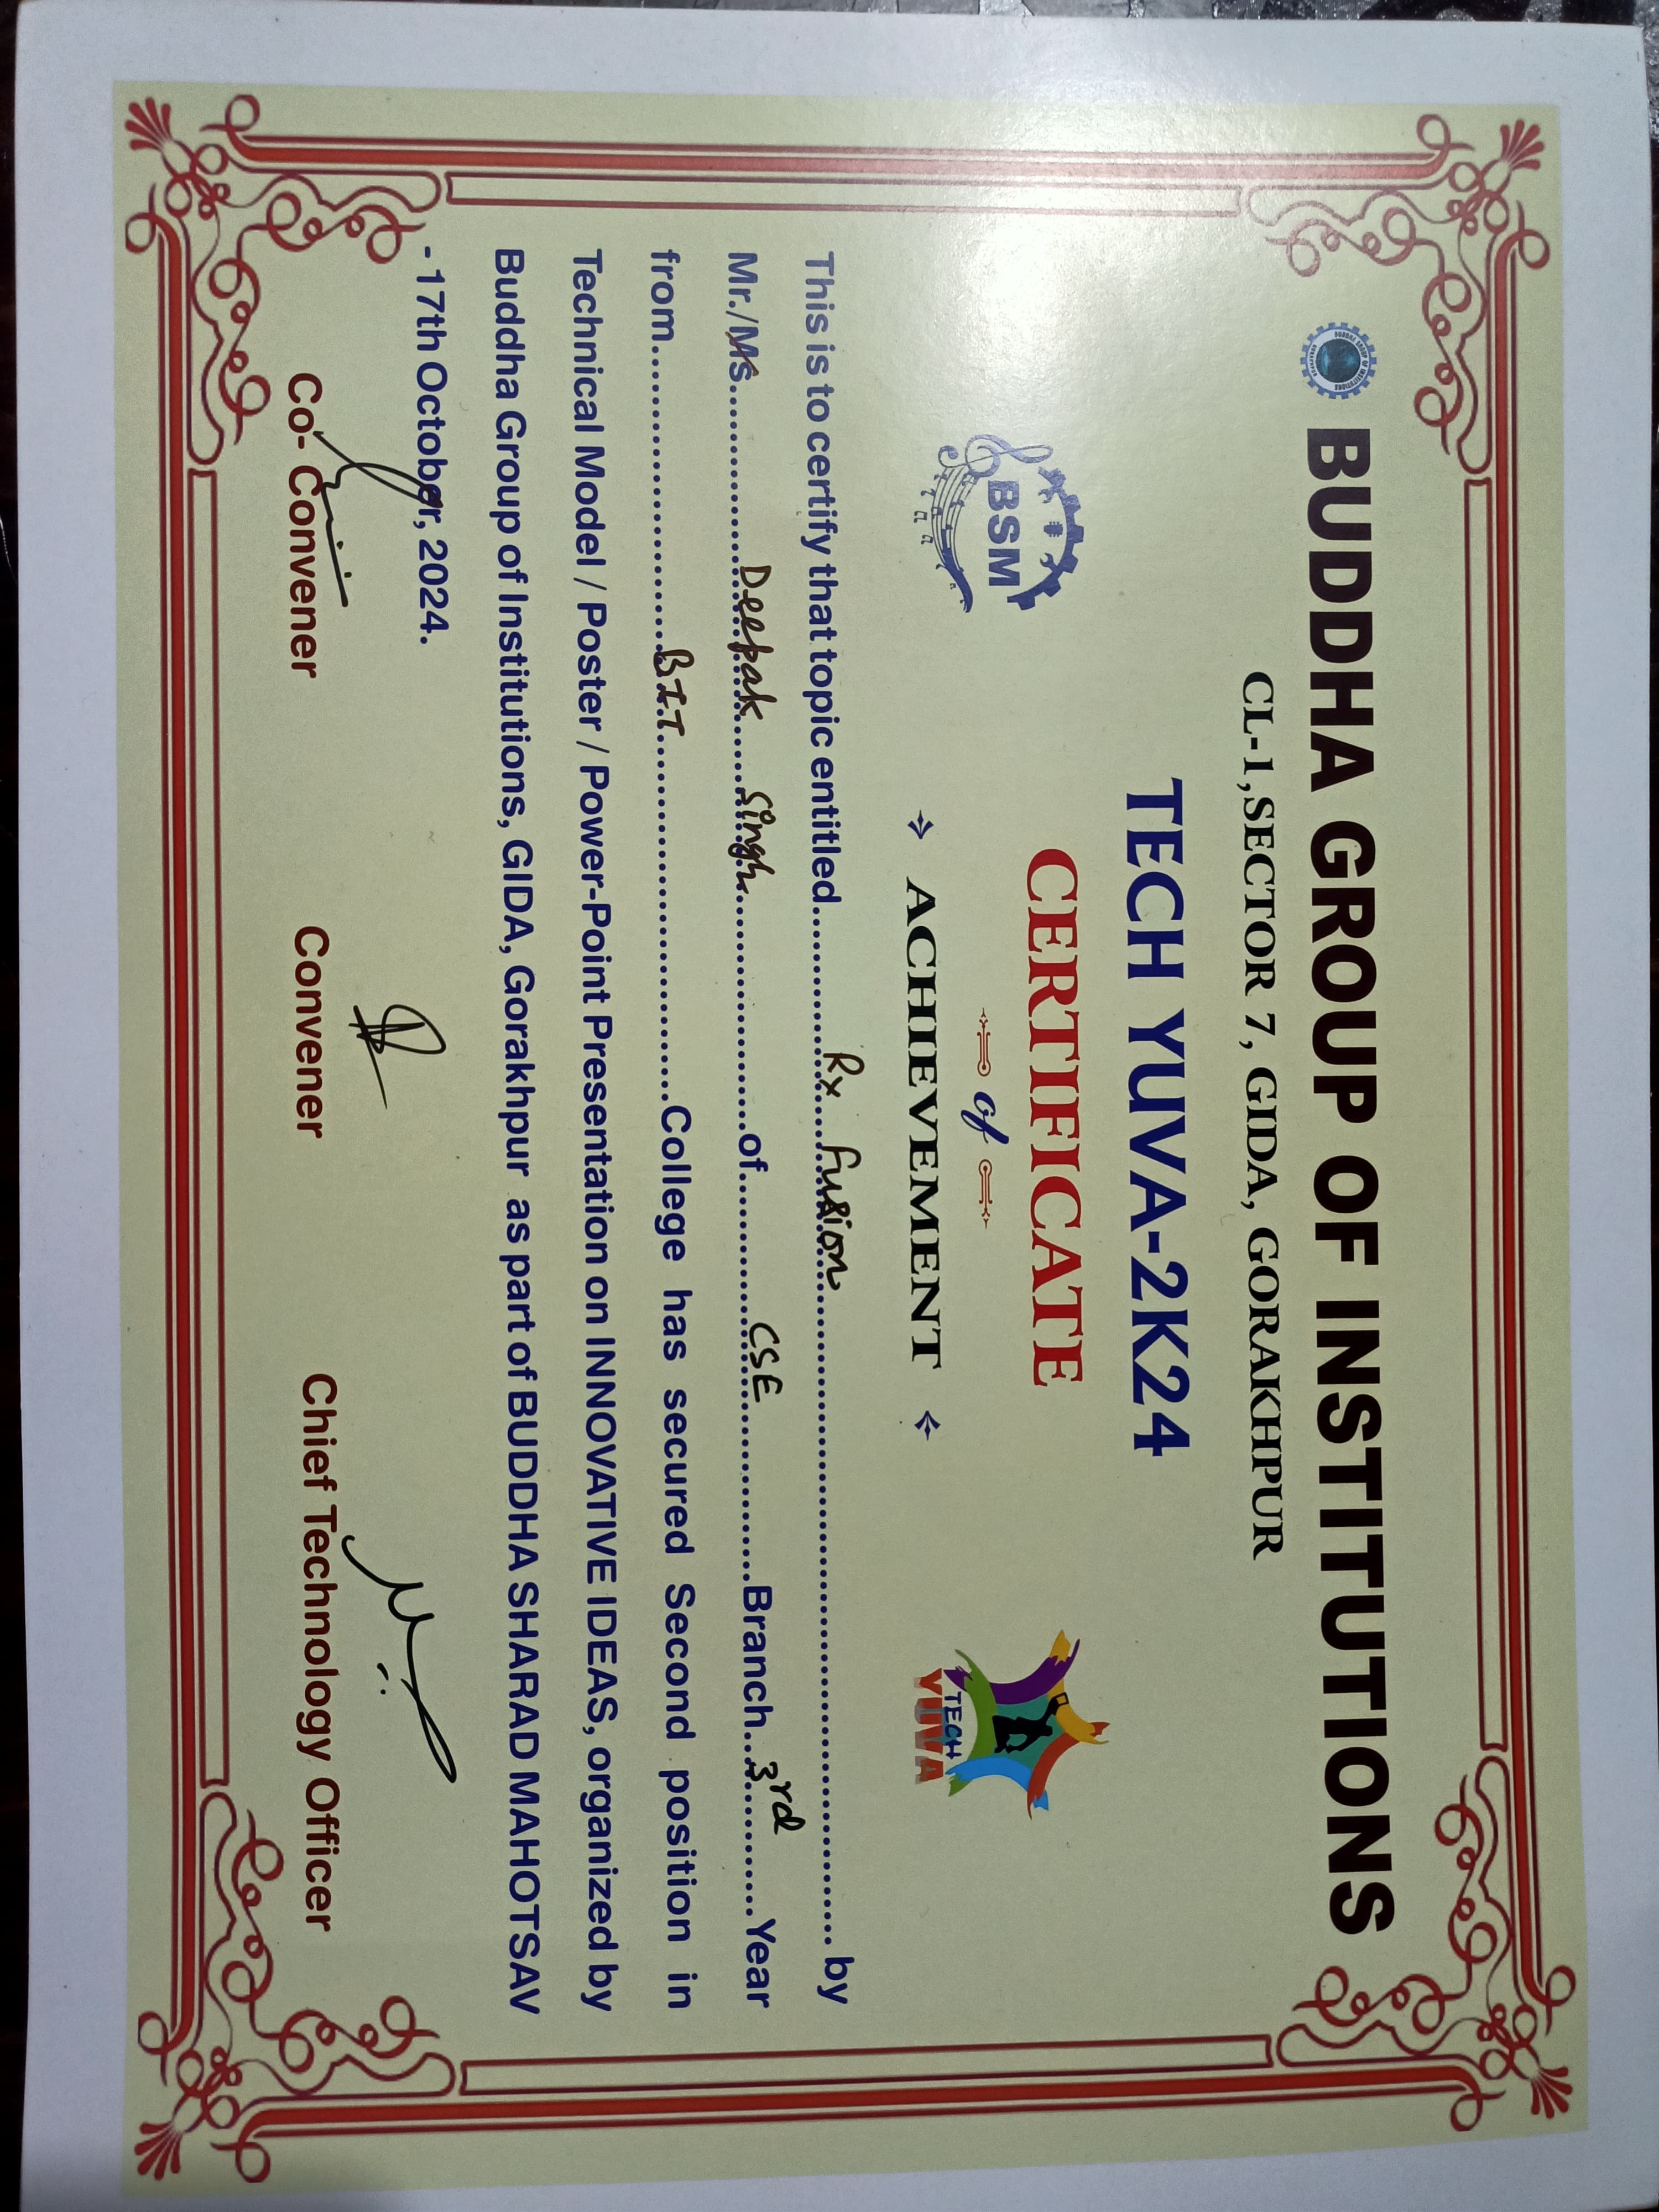 BUDDHA GROUP OF INSTITUTIONS
BUDDHA GROUP OF INSTITUTIONS
GORAKHPUR
CL-1,SECTOR 7, GIDA, GORAKHPUR
TECH YUVA-2K24
CERTIFICATE
of
ACHIEVEMENT
BSM
TECH
YUVA
This is to certify that topic entitled..........Rx Fusion..........by
Mr./Ms..........Deepak Singh..........of..........CSE..........Branch...3rd..........Year
from..........BIT..........College has secured Second position in
Technical Model / Poster / Power-Point Presentation on INNOVATIVE IDEAS, organized by
Buddha Group of Institutions, GIDA, Gorakhpur as part of BUDDHA SHARAD MAHOTSAV
- 17th October, 2024.
Co- Convener
Convener
Chief Technology Officer